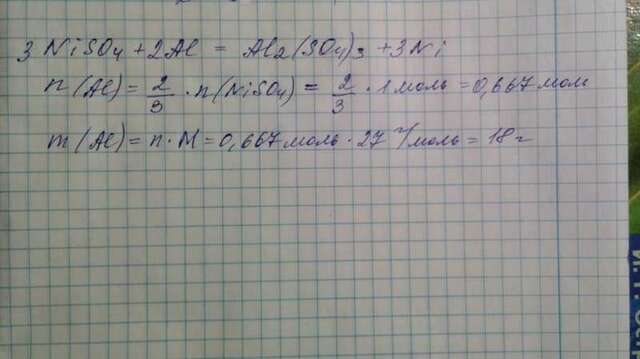 3 NiSO4 + 2Al = Al2(SO4)3 + 3Ni
n(Al) = 2/3 · n(NiSO4) = 2/3 · 1 моль = 0,667 моль
m(Al) = n · M = 0,667 моль · 27 г/моль = 18 г